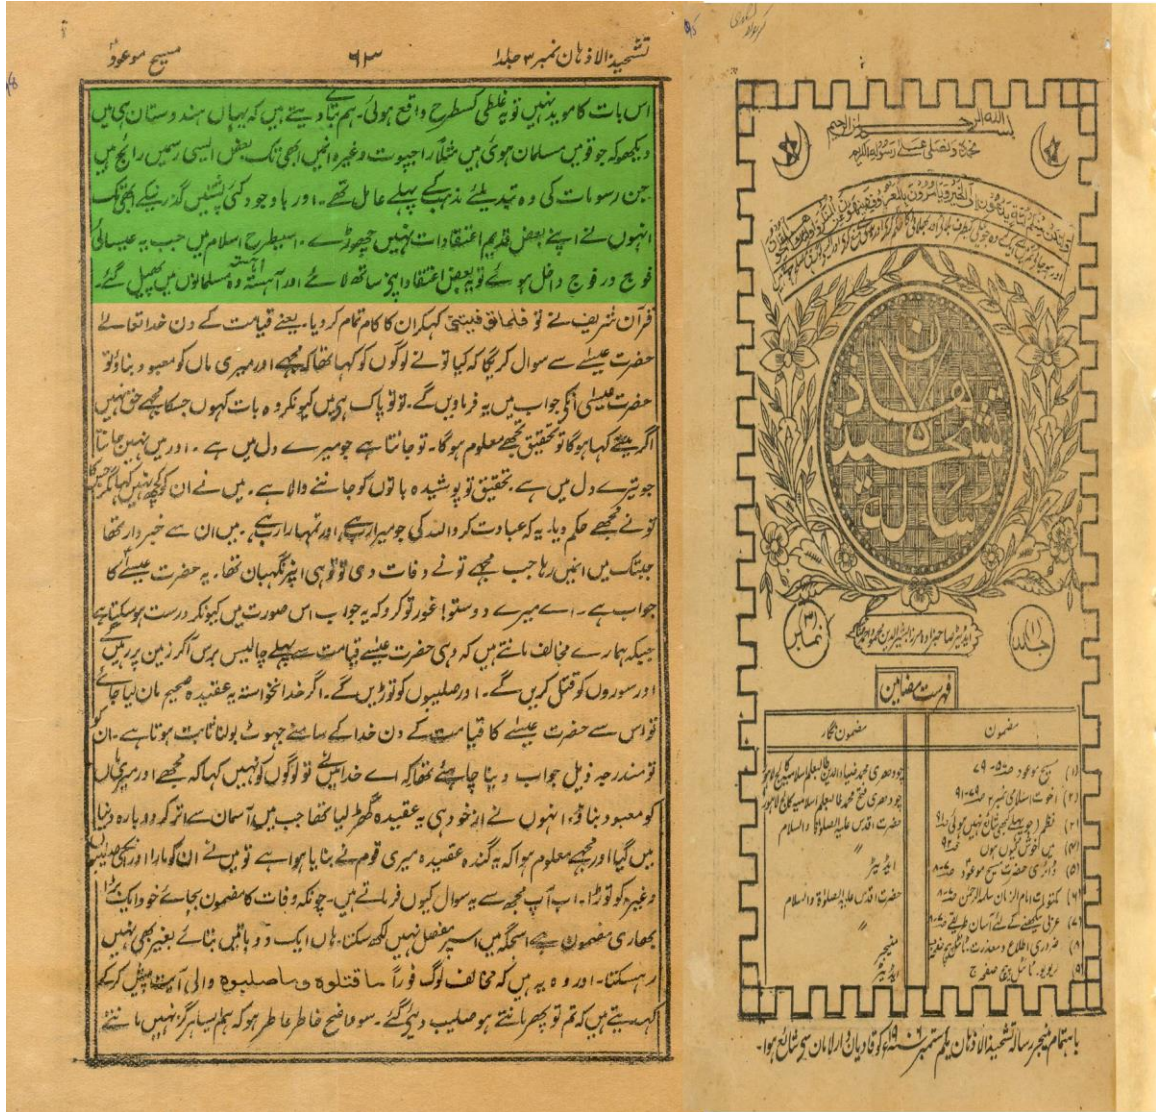 تشحیذالاذہان نمبر ۳ جلد۱
۶۱۳
مسیح موعودؑ
اس بات کا موید نہیں تو یہ غلطی کسطرح واقع ہوئی۔ ہم بتادیتے ہیں کہ یہاں ہندوستان ہی میں
دیکھو کہ جو قومیں مسلمان ہوئی ہیں مثلاً راجپوت وغیرہ انمیں ابھی تک بعض ایسی رسمیں رائج ہیں
جن رسومات کی وہ تبدیلئے مذہب کے پہلے عامل تھے۔ اور باوجود کئی پشتیں گذرنیکے ابھی تک
انہوں نے اپنے بعض قدیم اعتقادات نہیں چھوڑے۔ اسیطرح اسلام میں جب یہ عیسائی
فوج در فوج داخل ہوئے تو یہ بعض اعتقاد اپنے ساتھ لائے اور آہستہ آہستہ وہ مسلمانوں میں پھیل گئے۔
قرآن شریف نے تو فلما توفیتنی کہکر ان کا کام تمام کر دیا۔ یعنے قیامت کے دن خدا تعالےٰ
حضرت عیسےٰ سے سوال کریگا کہ کیا تو نے لوگوں کو کہا تھا کہ مجھے اور میری ماں کو معبود بناؤ تو
حضرت عیسیٰ اُسکی جواب میں یہ فرماویں گے۔ تو تو پاک ہی میں کیونکر وہ بات کہوں جسکا مجھے حق نہیں
اگر مینے کہا ہوگا تو تحقیق تجھے معلوم ہوگا۔ تو جانتا ہے جو میرے دل میں ہے۔ اور میں نہیں جانتا
جو تیرے دل میں ہے تحقیق تو پوشیدہ باتوں کو جاننے والا ہے۔ میں نے ان کو کچھ نہیں کہا مگر جسکا
تونے مجھے حکم دیا۔ یہ کہ عبادت کرو اللہ کی جو میرا رب ہے اور تمہارا رب ہے۔ میں ان سے خبردار تھا
جبتک میں انمیں رہا جب مجھے تو نے وفات دی تو تو ہی اُنپر نگہبان تھا۔ یہ حضرت عیسےٰؑ کا
جواب ہے۔ اے میرے دوستو! غور تو کرو کہ یہ جواب اس صورت میں کیونکر درست ہو سکتا ہے
جبکہ ہمارے مخالف مانتے ہیں کہ وہی حضرت عیسےٰ قیامت سے پہلے چالیس برس آکر زمین پر رہیں گے
اور سوروں کو قتل کریں گے۔ اور صلیبوں کو توڑیں گے۔ اگر خدانخواستہ یہ عقیدہ صحیح مان لیا جائے
تو اس سے حضرت عیسےٰ کا قیامت کے دن خدا کے سامنے جھوٹ بولنا ثابت ہوتا ہے۔ ان کو
تو مندرجہ ذیل جواب دینا چاہئے تھا کہ اے خدا مینے تو لوگوں کو نہیں کہا کہ مجھے اور میری ماں
کو معبود بناؤ، انہوں نے از خود ہی یہ عقیدہ گھڑ لیا تھا جب میں آسمان سے اتر کر دوبارہ دنیا
میں گیا اور مجھے معلوم ہوا کہ یہ گندہ عقیدہ میری قوم نے بنایا ہوا ہے تو میں نے ان کو مارا اور انکی صلیب
وغیرہ کو توڑا۔ اب آپ مجھ سے یہ سوال کیوں فرماتے ہیں۔ چونکہ وفات کا مضمون بجائے خود ایک بڑا
بھاری مضمون ہے اسجگہ میں اسپر مفصل نہیں لکھ سکتا۔ ہاں ایک دو باتیں بتائے بغیر بھی نہیں
رہ سکتا۔ اور وہ یہ ہیں کہ مخالف لوگ فوراً ماقتلوہ وماصلبوہ والی آیت پیش کر کے
کہدیتے ہیں کہ تم تو پھر مانتے ہو صلیب دیئی گئے۔ سو واضح خاطر عاطر ہو کہ ہم ایسا ہرگز نہیں مانتے
بسم اللہ الرحمن الرحیم
نحمدہ ونصلی علےٰ رسولہ الکریم
رسالہ
تشحیذالاذہان
جلد (۱)
ایڈیٹر صاحبزادہ مرزا بشیرالدین محمود احمد
نمبر (۳)
فہرست مضامین
مضمون
مضمون نگار
(۱) مسیح موعود
چودھری محمد ضیاءالدین طالبعلم اسلامیہ کالج لاہور
(۲) اخوت اسلامی نمبر ۲
چودھری فتح محمد طالبعلم اسلامیہ کالج لاہور
(۳) نظم (جو پہلے کبھی شائع نہیں ہوئی)
حضرت اقدس علیہ الصلوٰۃ والسلام
(۴) میں کیوں ہوں
〃
(۵) ڈائری حضرت مسیح موعودؑ
ایڈیٹر
(۶) مکتوبات امام الزمان سلمہ الرحمٰن
حضرت اقدس علیہ الصلوٰۃ والسلام
(۷) عربی سیکھنے کے لئے آسان طریقے
〃
(۸) ضروری اطلاع و معذرت
منیجر
(۹) ریویو۔ ٹائٹل پیج صفحہ ج
ایڈیٹر
باہتمام منیجر رسالہ تشحیذالاذہان یکم ستمبر ۱۹۰۶ء کو قادیان دارالامان سے شائع ہوا۔